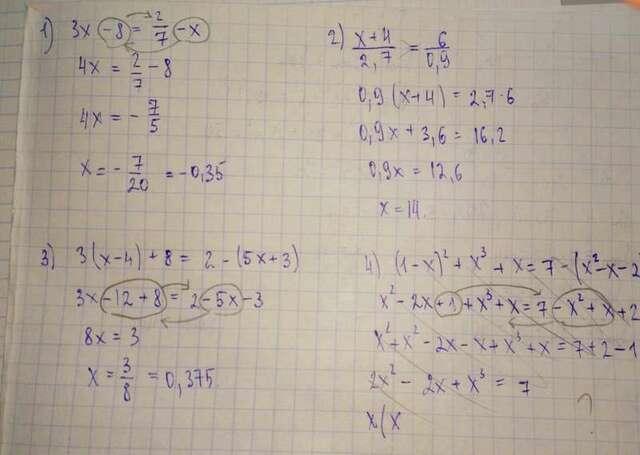 1) 3x - 8 = 2/7 - x
4x = 2/7 - 8
4x = - 7/5
x = - 7/20 = -0,35
2) x+4/2,7 = 6/0,9
0,9(x+4) = 2,7·6
0,9x + 3,6 = 16,2
0,9x = 12,6
x = 14.
3) 3(x-4) + 8 = 2 - (5x+3)
3x - 12 + 8 = 2 - 5x - 3
8x = 3
x = 3/8 = 0,375
4) (1-x)² + x³ + x = 7 - (x² - x - 2
x² - 2x + 1 + x³ + x = 7 - x² + x + 2
x² + x² - 2x - x + x³ + x = 7 + 2 - 1
2x² - 2x + x³ = 7
x(x
?